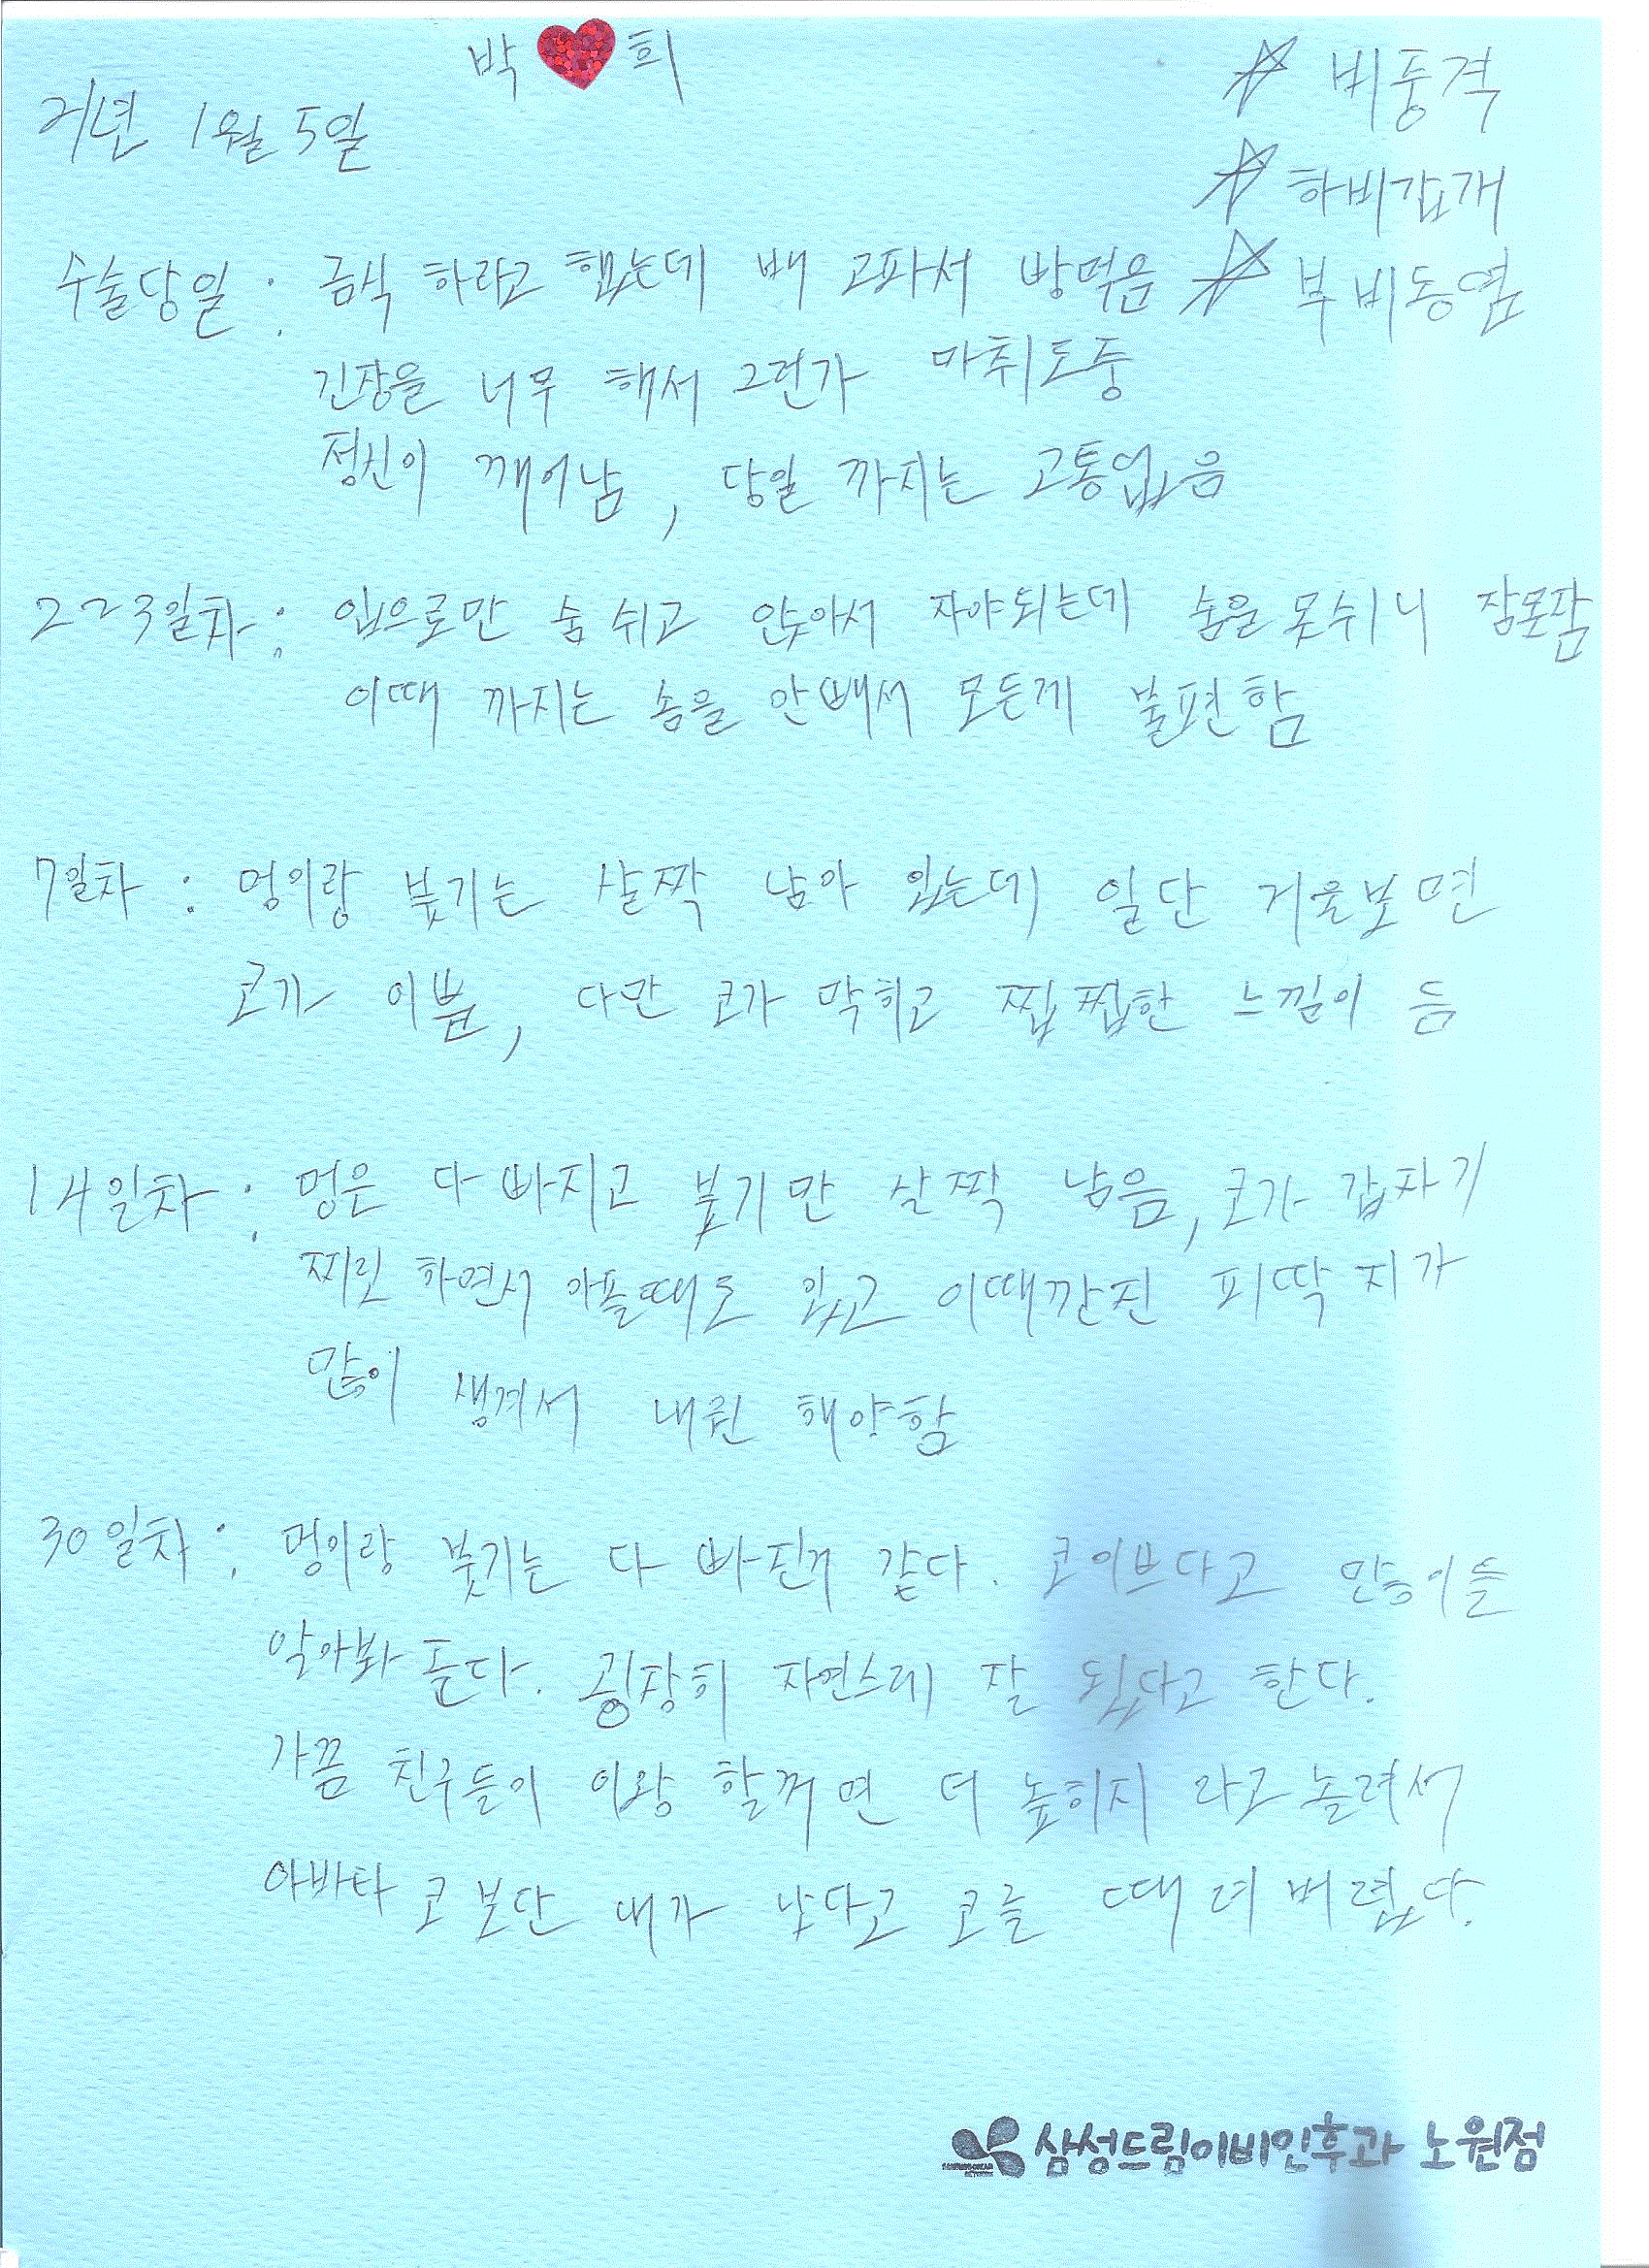 박 희
21년 1월 5일
☆ 비중격
☆ 하비갑개
☆ 부비동염
수술당일 : 금식 하라고 했는데 배 고파서 빵먹음
긴장을 너무 해서 그런가 마취도중
정신이 깨어남, 당일 까지는 고통없음
2~3일차 : 입으로만 숨 쉬고 앉아서 자야되는데 숨을 못쉬니 잠못잠
이때 까지는 솜을 안빼서 모든게 불편함
7일차 : 멍이랑 붗기는 살짝 남아 있는데 일단 거울보면
코가 이쁨, 다만 코가 막히고 찝찝한 느낌이 듬
14일차 : 멍은 다 빠지고 붗기만 살짝 남음, 코가 갑자기
찌릿 하면서 아플때도 있고 이때간진 피딱지가
많이 생겨서 내원 해야함
30일차 : 멍이랑 붗기는 다 빠진거 같다. 코이쁘다고 많이들
알아봐 준다. 굉장히 자연스레 잘 됬다고 한다.
가끔 친구들이 이왕 할꺼면 더 높히지 라고 놀려서
아바타 코 보단 내가 낫다고 코를 때려 버렸다.
삼성드림이비인후과 노원점